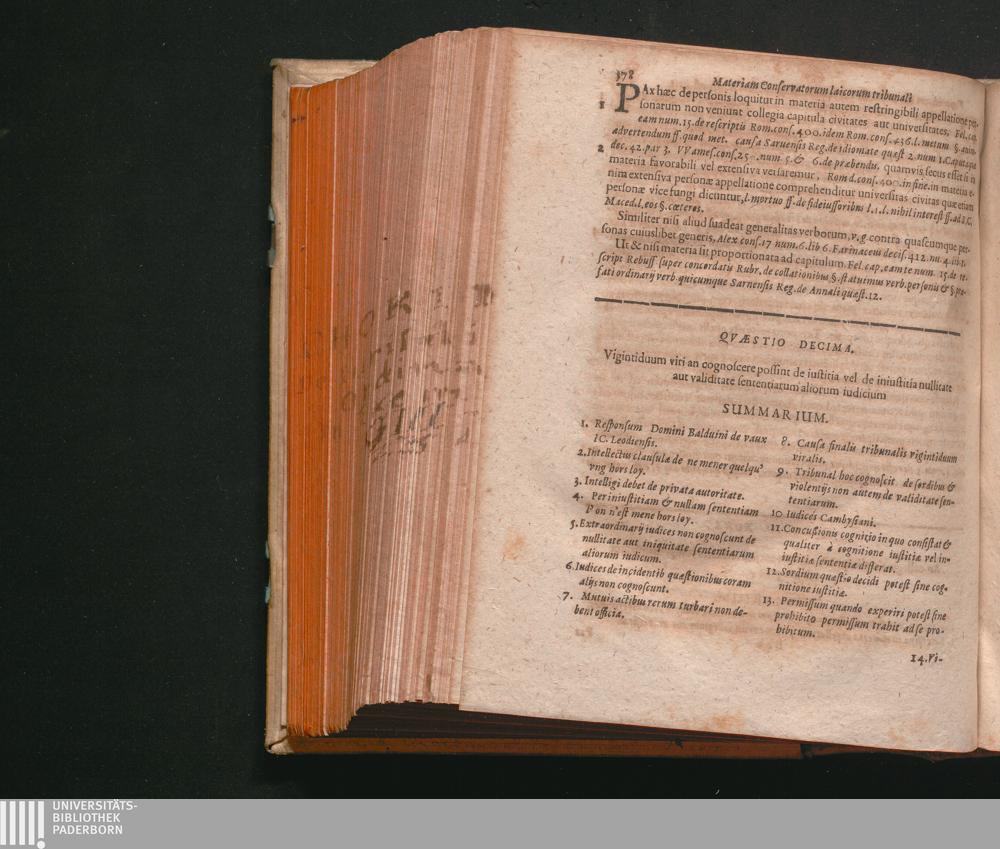 378
Materiam Conservatorum laicorum tribunali
1 PAx hæc de personis loquitur in materia autem restringibili appellatione per-
sonarum non veniunt collegia capitula civitates aut universitates, Fel. cap.
eam num. 15. de rescriptis Rom. cons. 400. idem Rom. cons. 436. l. metum §. anim-
advertendum ff. quod met. causa Sarnensis Reg. de idiomate quæst 2. num 1. Caputaqu.
2 dec. 42. par 3. VVames. cons. 25 num 5. & 6. de præbendis, quamvis secus esset si in
materia favorabili vel extensiva versaremur, Rom d. cons. 400. in fine. in materia e-
nim extensiva personæ appellatione comprehenditur universitas civitas quæ etiam
personæ vice fungi dicuntur, l. mortuo ff. de fideiussoribus l. 1. l. nihil interest ff. ad S. C.
Maced. l. eos §. cæteros.
Similiter nisi aliud suadeat generalitas verborum, v, g contra quascumque per-
sonas cuiuslibet generis, Alex cons. 17 num. 6. lib 6. Farinaceus decis. 412. nu. 4. in 1.
Ut & nisi materia sit proportionata ad capitulum. Fel. cap. eam te num. 15. de re
script Rebuff super concordatis Rubr. de collationibus §. statuimus verb. personis & §. præ-
fati ordinarij verb. quicumque Sarnensis Reg. de Annali quæst. 12.
QVÆSTIO DECIMA.
Vigintiduum viri an cognoscere possint de iustitia vel de iniustitia nullitate
aut validitate sententiarum aliorum iudicium
SUMMARIUM.
1. Responsum Domini Balduini de vaux
IC. Leodiensis.
2. Intellectus clausulæ de ne mener quelqu'
vng hors loy.
3. Intelligi debet de privata autoritate.
4. Per iniustitiam & nullam sententiam
l'on n'est mene hors loy.
5. Extraordinarij iudices non cognoscunt de
nullitate aut iniquitate sententiarum
aliorum iudicum.
6. Iudices de incidentib quæstionibus coram
alijs non cognoscunt.
7. Mutuis actibus rerum turbari non de-
bent officia.
8. Causa finalis tribunalis vigintiduum
viralis.
9. Tribunal hoc cognoscit de sordibus &
violentijs non autem de validitate sen-
tentiarum.
10 Iudices Cambysiani.
11. Concussionis cognitio in quo consistat &
qualiter à cognitione iustitiæ vel in-
iustitiæ sententiæ differat.
12. Sordium quæstio decidi potest sine cog-
nitione iustitiæ.
13. Permissum quando experiri potest sine
prohibito permissum trahit ad se pro-
hibitum.
14. Vi-
UNIVERSITÄTS-
BIBLIOTHEK
PADERBORN